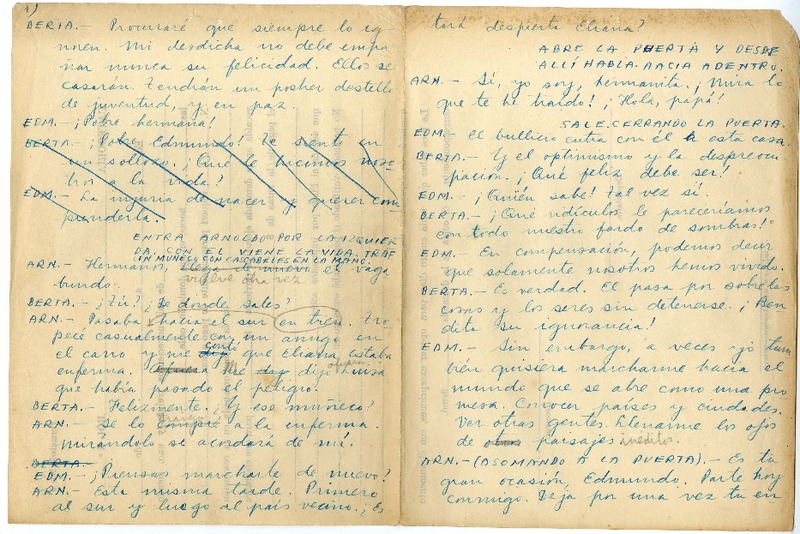 1)
BERTA.- Procuraré que siempre lo ig
noren. Mi desdicha no debe empa
ñar nunca su felicidad. Ellos se
casarán. Tendrán un posher destello
de juventud, y en paz.
EDM.- ¡Pobre hermana!
BERTA.- ¡Pobre Edmundo! Te siento en
un sollozo. ¿Qué le hicimos noso
tros a la vida?
EDM.- La injuria de nacer y querer com
prenderla.
ENTRA ARNOLDO POR LA IZQUIER
DA. CON EL VIENE LA VIDA. TRAE
UN MUÑECO CON CASCABELES EN LA MANO.
ARN.- Hermano, llega de nuevo el vaga
bundo. vuelve otra vez
BERTA.- ¿Tú? ¿De dónde sales?
ARN.- Pasaba hacia el sur en tren. Tro
pecé casualmente con un amigo en
el carro y me contó que Eliana estaba
enferma. Me dijo
que había pasado el peligro.
BERTA.- Felizmente. ¿Y ese muñeco?
ARN.- Se lo compré a la enferma.
Mirándolo se acordará de mí.
BERTA.-
EDM.- ¿Piensas marcharte de nuevo?
ARN.- Esta misma tarde. Primero
al sur y luego al país vecino. ¿Es
tará despierta Eliana?
ABRE LA PUERTA Y DESDE
ALLÍ HABLA HACIA ADENTRO.
ARN.- Sí, yo soy, hermanita. ¡Mira lo
que te he traído! ¡Hola, papá!
SALE CERRANDO LA PUERTA.
EDM.- El bullicio entra con él a esta casa.
BERTA.- Y el optimismo y la despreocu
pación. ¡Qué feliz debe ser!
EDM.- ¡Quién sabe! Tal vez sí.
BERTA.- ¡Qué ridículos le pareceríamos
con todo nuestro fardo de sombras!
EDM.- En compensación, podemos decir
que solamente nosotros hemos vivido.
BERTA.- Es verdad. El pasa por sobre las
cosas y los seres sin detenerse. ¡Ben
dita su ignorancia!
EDM.- Sin embargo, a veces yo tam
bién quisiera marcharme hacia el
mundo que se abre como una pro
mesa. Conocer países y ciudades.
Ver otras gentes. Llenarme los ojos
de otros paisajes inéditos.
ARN.- (ASOMANDO A LA PUERTA).- Es tu
gran ocasión, Edmundo. Parte hoy
conmigo. Deja por una vez tu en